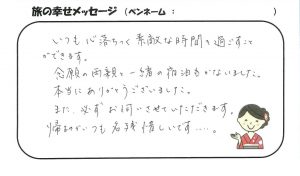 旅の幸せメッセージ（ペンネーム：　　　　　　）
いつも心落ちつく素敵な時間を過ごすこと
ができます。
念願の両親と一緒の宿泊もかないました。
本当にありがとうございました。
また、必ずお伺いさせていただきます。
帰るのがいつも名残惜しいです……。